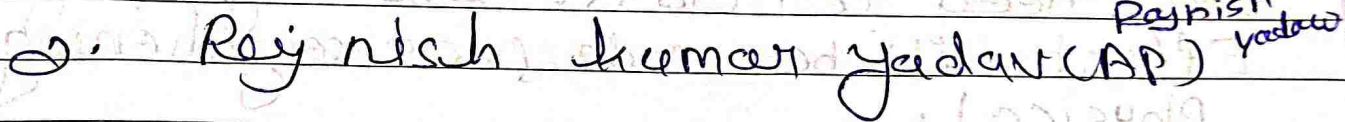 2. Rajnish kumar yadav (AP) Rajnish yadaw